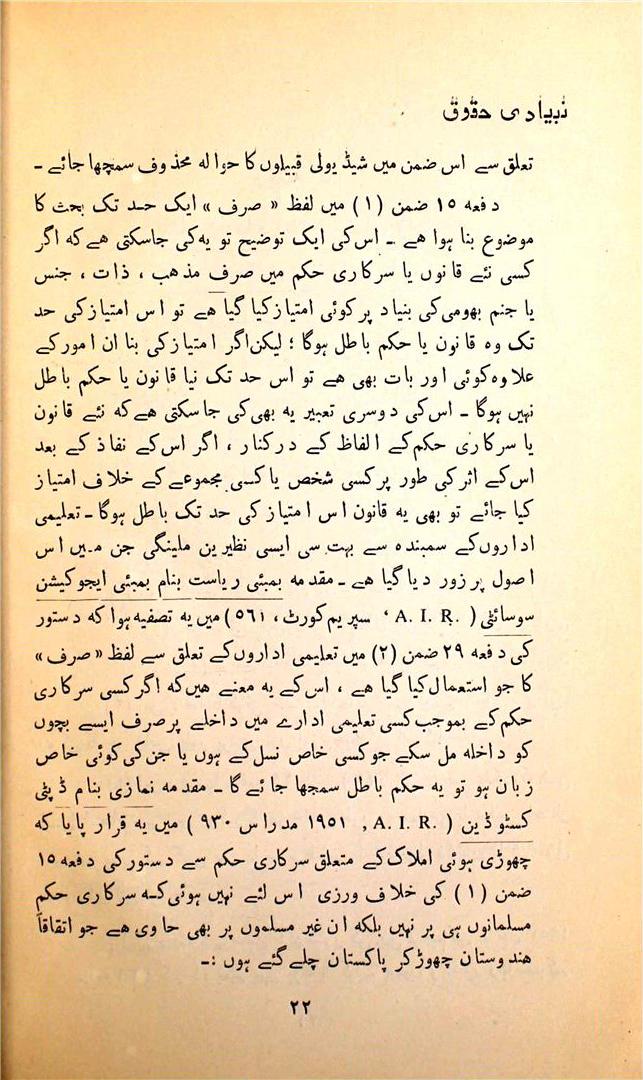 بنیادی حقوق
تعلق سے اس ضمن میں شیڈیولی قبیلوں کا حوالہ محذوف سمجھا جائے ـ
دفعہ ١٥ ضمن (١) میں لفظ «صرف» ایک حد تک بحث کا
موضوع بنا ہوا ہے ـ اس کی ایک توضیح تو یہ کی جاسکتی ہے کہ اگر
کسی نئے قانون یا سرکاری حکم میں صرف مذہب ، ذات ، جنس
یا جنم بھومی کی بنیاد پر کوئی امتیاز کیا گیا ہے تو اس امتیاز کی حد
تک وہ قانون یا حکم باطل ہوگا ؛ لیکن اگر امتیاز کی بنا ان امور کے
علاوہ کوئی اور بات بھی ہے تو اس حد تک نیا قانون یا حکم باطل
نہیں ہوگا ـ اس کی دوسری تعبیر یہ بھی کی جاسکتی ہے کہ نئے قانون
یا سرکاری حکم کے الفاظ کے درکنار ، اگر اس کے نفاذ کے بعد
اس کے اثر کی طور پر کسی شخص یا کسی مجموعے کے خلاف امتیاز
کیا جائے تو بھی یہ قانون اس امتیاز کی حد تک باطل ہوگا ـ تعلیمی
اداروں کے سمبندھ سے بہت سی ایسی نظیریں ملینگی جن میں اس
اصول پر زور دیا گیا ہے ـ مقدمہ بمبئی ریاست بنام بمبئی ایجوکیشن
سوسائٹی ( A. I. R. ‘ سپریم کورٹ ، ٥٦١) میں یہ تصفیہ ہوا کہ دستور
کی دفعہ ٢٩ ضمن (٢) میں تعلیمی اداروں کے تعلق سے لفظ «صرف»
کا جو استعمال کیا گیا ہے ، اس کے یہ معنے ہیں کہ اگر کسی سرکاری
حکم کے بموجب کسی تعلیمی ادارے میں داخلے پر صرف ایسے بچوں
کو داخلہ مل سکے جو کسی خاص نسل کے ہوں یا جن کی کوئی خاص
زبان ہو تو یہ حکم باطل سمجھا جائے گا ـ مقدمہ نمازی بنام ڈپٹی
کسٹوڈین ( A. I. R. , ١٩٥١ مدراس ٩٣٠ ) میں یہ قرار پایا کہ
چھوڑی ہوئی املاک کے متعلق سرکاری حکم سے دستور کی دفعہ ١٥
ضمن (١) کی خلاف ورزی اس لئے نہیں ہوئی کہ سرکاری حکم
مسلمانوں ہی پر نہیں بلکہ ان غیر مسلموں پر بھی حاوی ہے جو اتفاقاً
ہندوستان چھوڑ کر پاکستان چلے گئے ہوں :ـ
٢٢